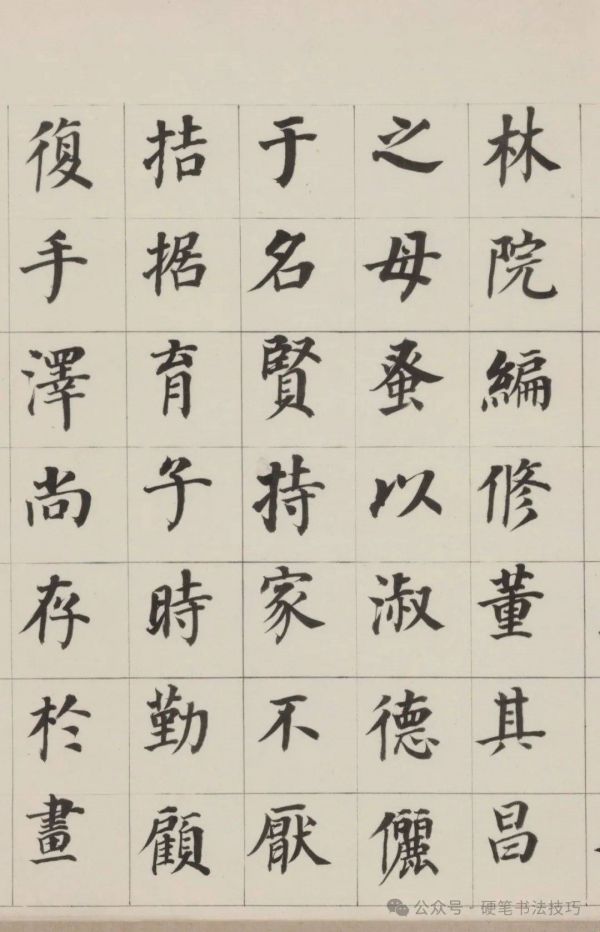 林院編修董其昌
之母蚤以淑德儷
于名賢持家不厭
拮据育子時勤顧
復手澤尚存於畫
公众号·硬笔书法技巧